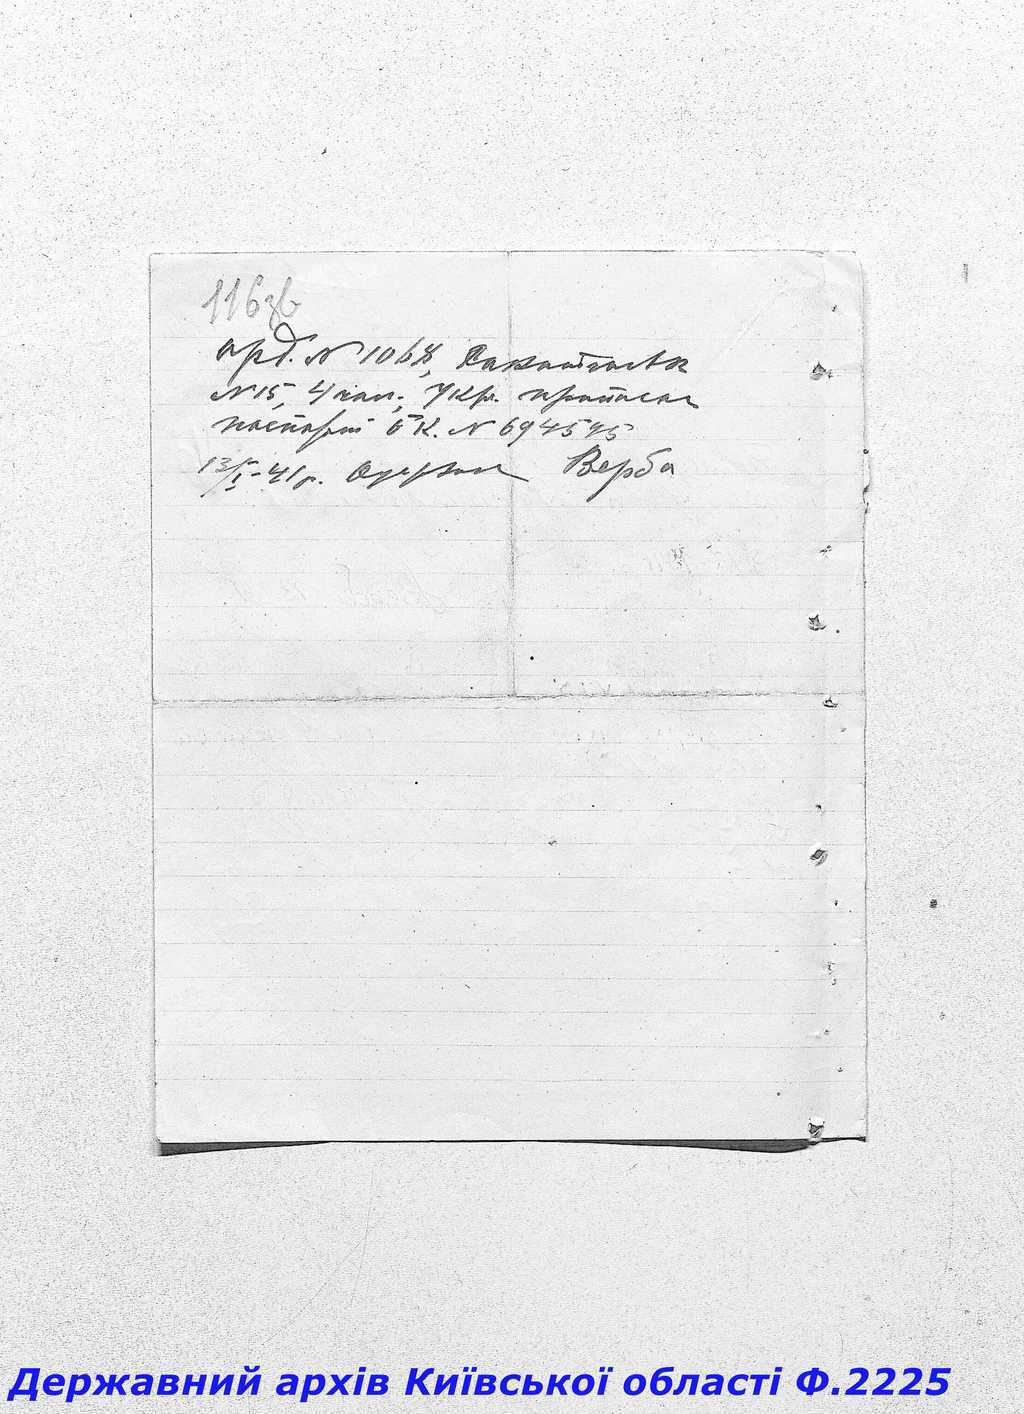 116зв
орд. № 1068,
№ 15, 4 Укр.
паспорт БК. № 694595
13/I-41 р. Одержал Верба
Державний архів Київської області Ф.2225